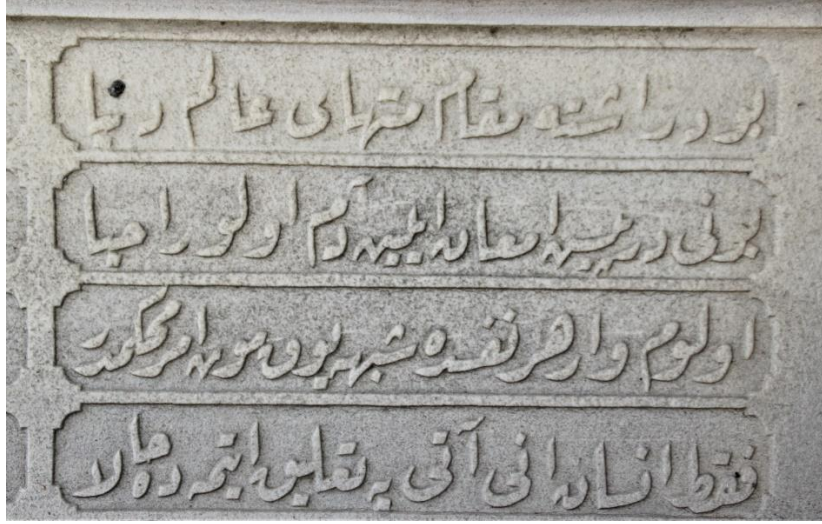 بودر اشته مقام منتهای عالم دنیا
بونی درپیش امعان ایلین آدم اولور احیا
اولوم وار هر نفسده شبهه یوق موت امر محکمدر
فقط انسان انی آتی یه تعلیق ایتمه ده حالا